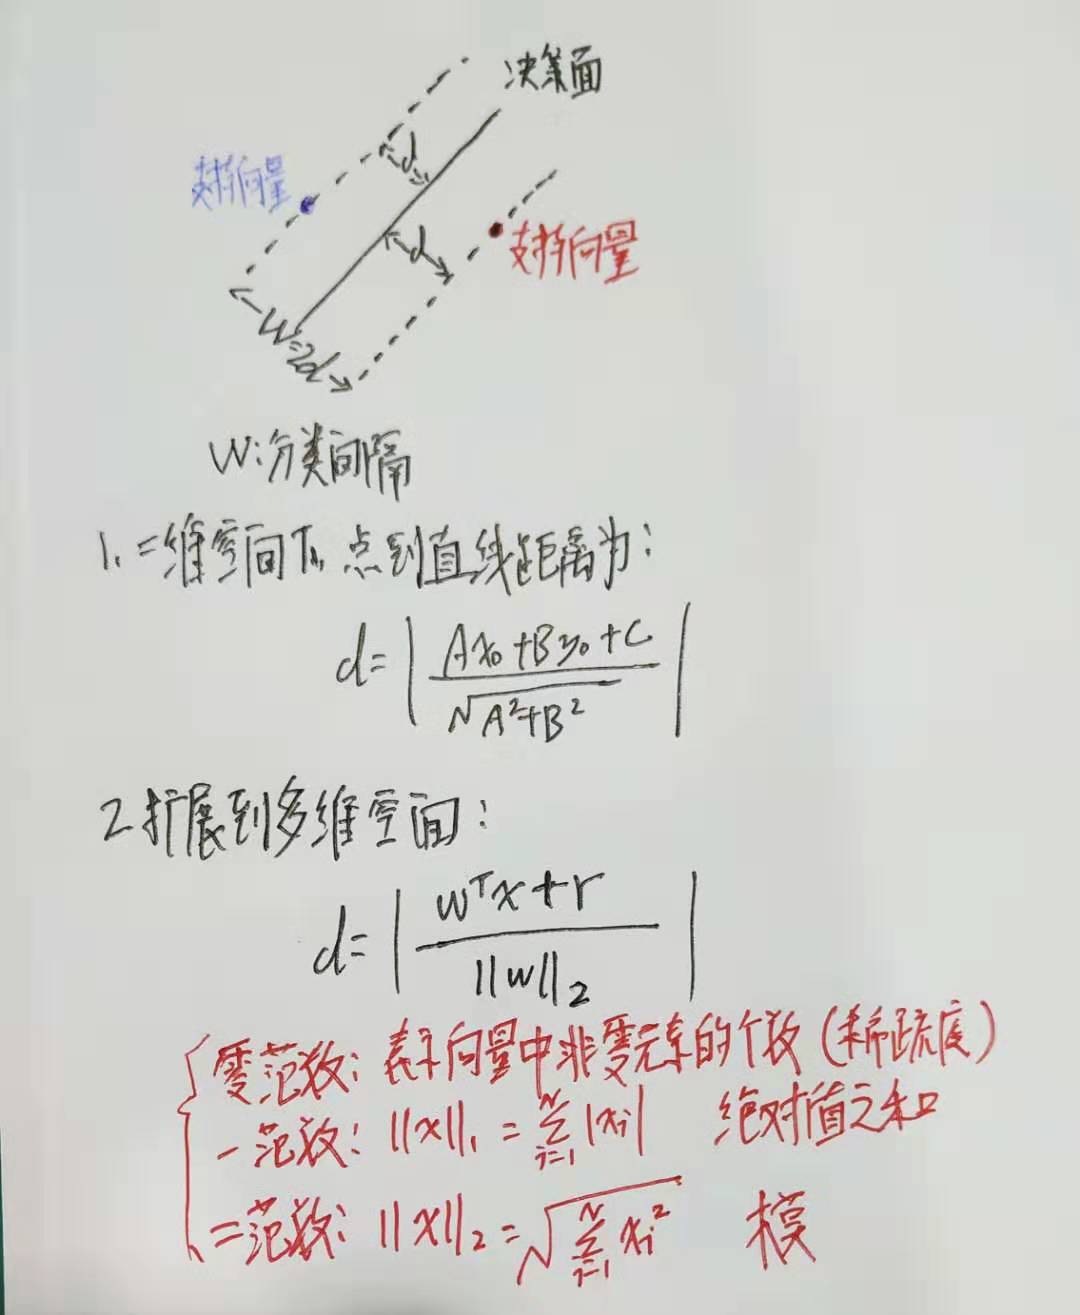 决策面
d
支持向量
d
支持向量
W=2d
W:分类间隔
1、二维空间下，点到直线距离为：
d=|(Ax₀+By₀+C)/√(A²+B²)|
2.扩展到多维空间：
d=|(wᵀx+r)/||w||₂|
零范数：表示向量中非零元素的个数（稀疏度）
一范数：||x||₁=∑ᵢ₌₁ᴺ|xᵢ| 绝对值之和
二范数：||x||₂=√(∑ᵢ₌₁ᴺxᵢ²) 模